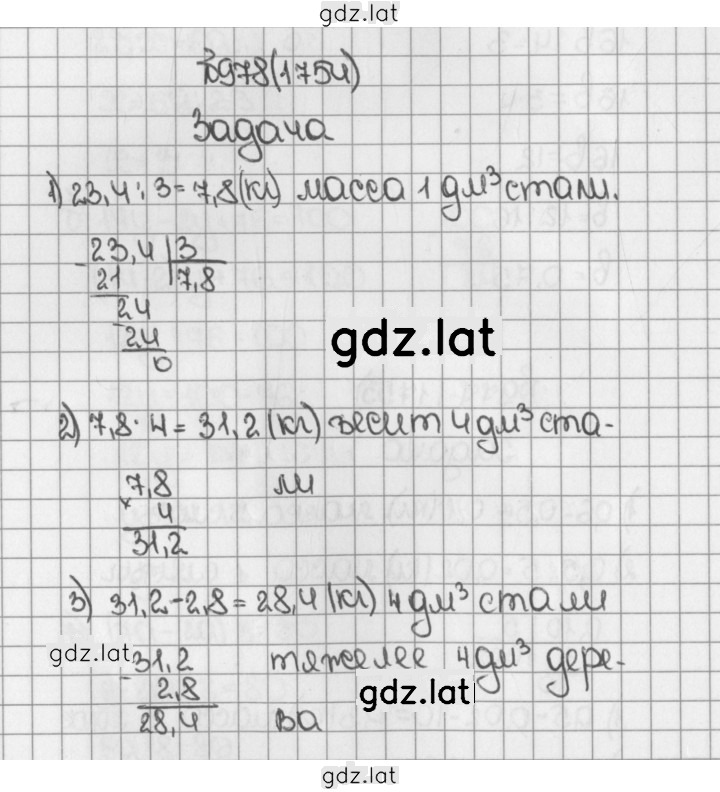 gdz.lat
№978(1754)
Задача
1) 23,4 : 3 = 7,8(кг) масса 1 дм³ стали.
- 23,4 | 3
21 | 7,8
- 24
24
0
gdz.lat
2) 7,8 · 4 = 31,2 (кг) весит 4 дм³ ста-
7,8 ли
× 4
31,2
3) 31,2 - 2,8 = 28,4 (кг) 4 дм³ стали
gdz.lat
- 31,2 тяжелее 4 дм³ дере-
2,8
gdz.lat
28,4 ва
gdz.lat